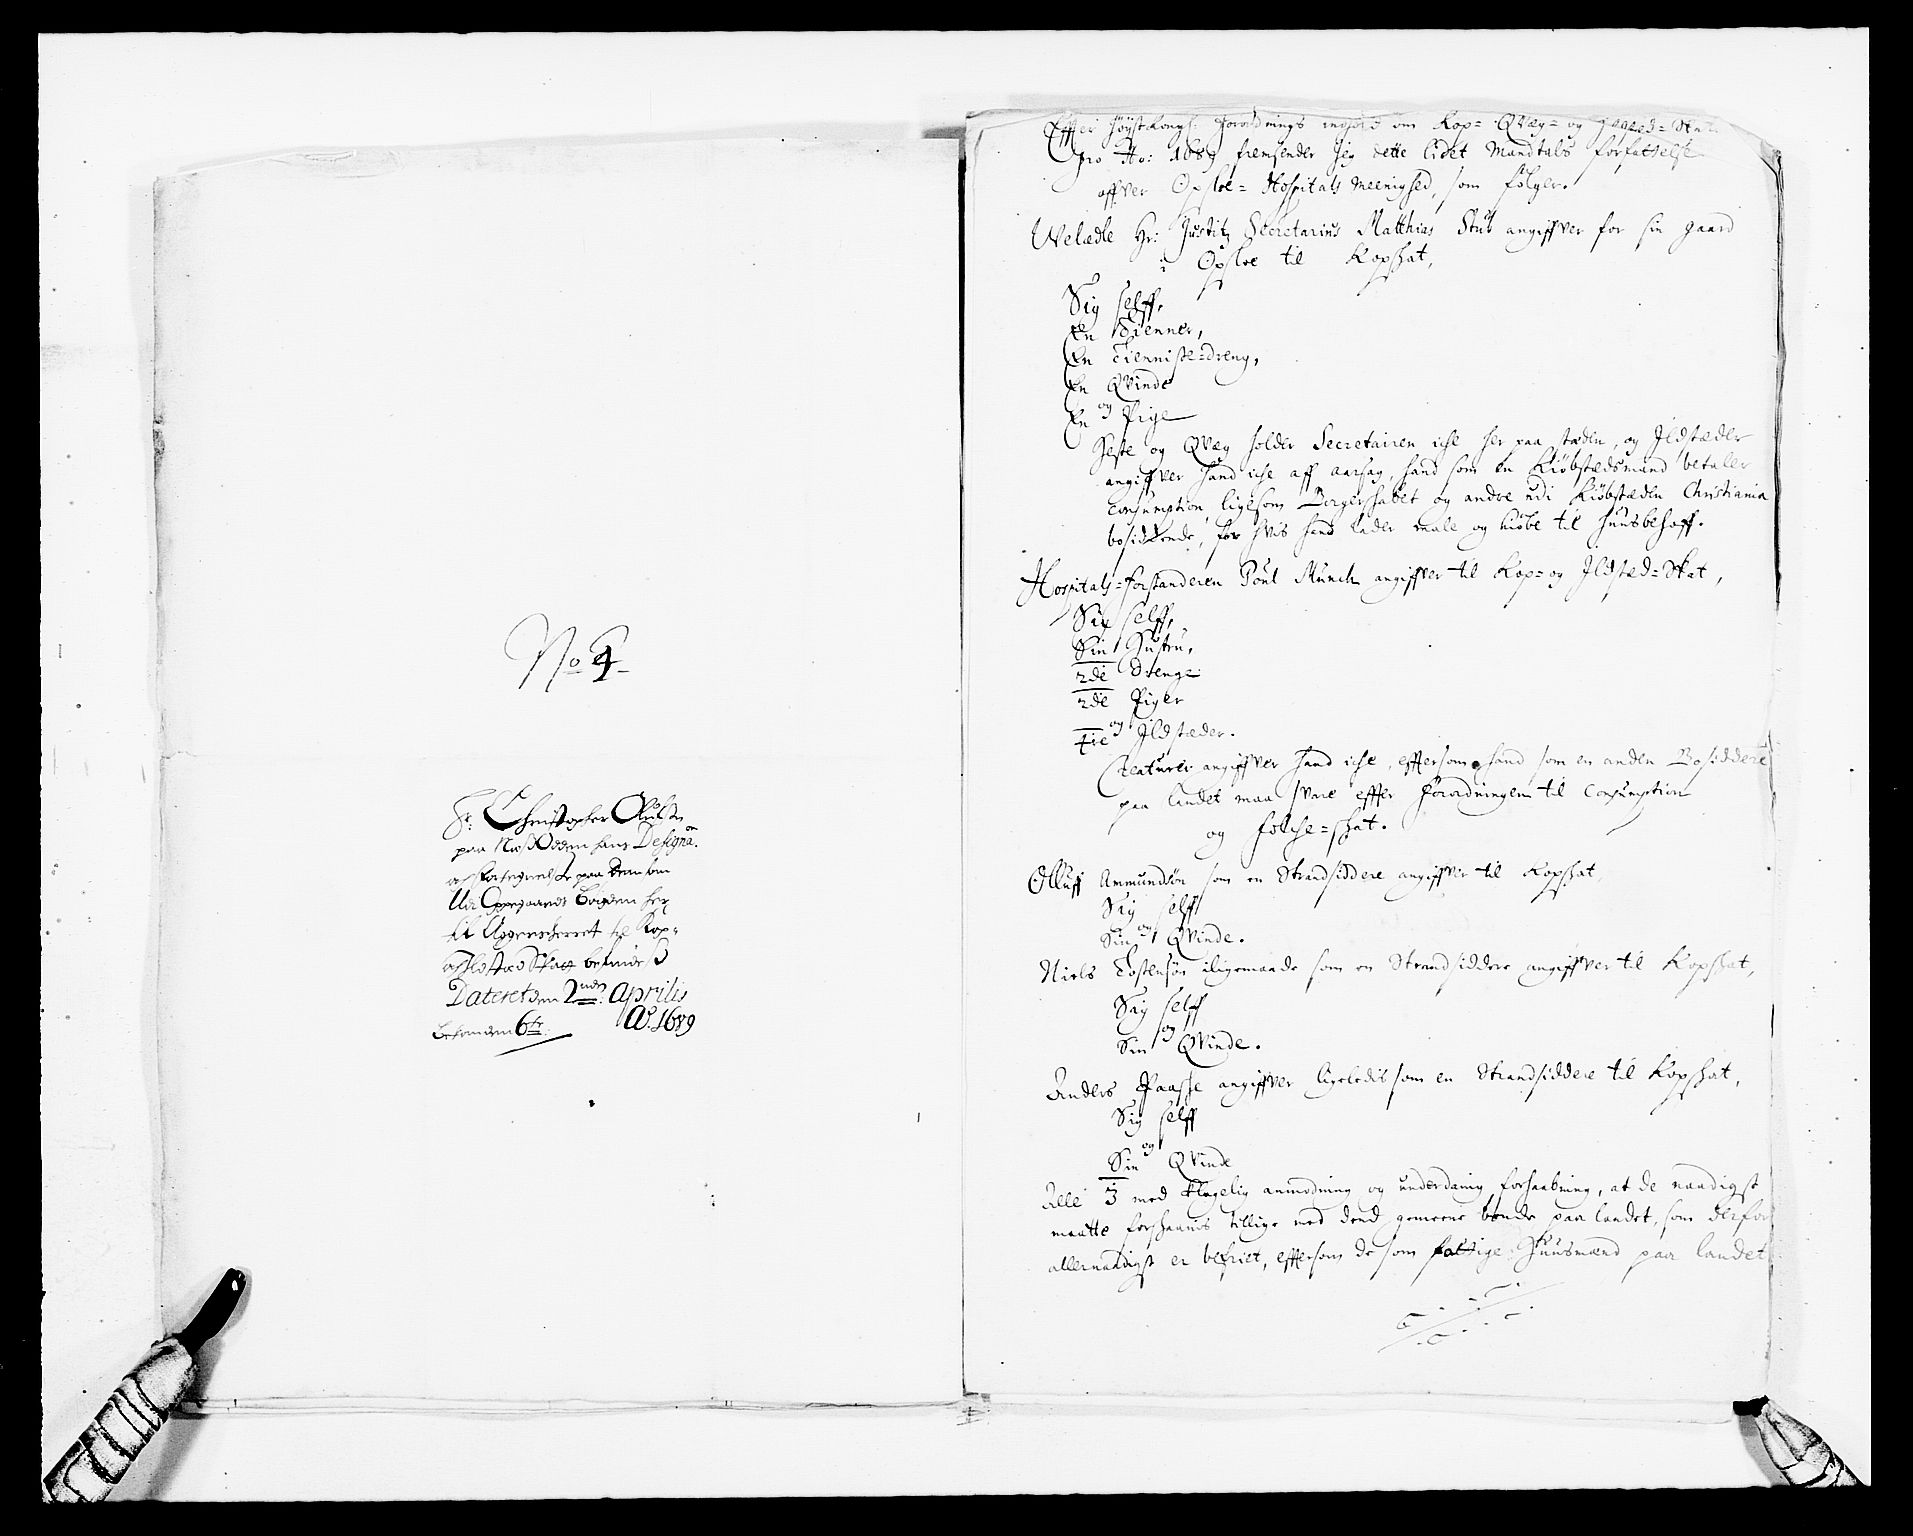 No 4
Hr: Christopher
paa Næsoddens hans Designa.on
paa dem som
Udi Oppegaards Sougen her
til Aggersherret til Kop-
och Ildsted Skatt befindes
Dateret den 2den Aprilis
bekomen 6te Ao. 1689
Effter høyst Kongl: forordnings indhold om Kop- Qvæg- og
pro Ao: 1689 fremsender Jeg dette lidet Mandtals forfattelse
offver Opsloe-Hospitals meenighed, som følger.
Welædle Hr: Justitz Secretarius Matthias Stub angiffver for sin gaard
i Opsloe til Kopskat,
Sig selff,
En Tienner,
En Tienniste-dreng,
En Qvinde
og
En Pige
Heste og Qvæg holder Secretairen iche her paa stæden, og Ildstæder
angiffver hand iche aff aarsag, hand som en Kiøbstædsmand betaler
Consumption, ligesom Borgerskabet og andre udi Kiøbstæden Christiania
bosiddende, for hvis hand lader male og kiøbe til huusbehoff.
Hospitals-forstanderen Poul Munch angiffver til Kop- og Ildstæd-Skat,
Sig selff,
Sin Hustru,
2de Drenge
2de Piger
og
tre Ildstæder.
Creaturer angiffver hand iche, efftersom hand som en anden Bosiddere
paa landet maa svare effter forordningen til Consumption
og folche-skat.
Olluff Ammundsøn som en Strandsiddere angiffver til Kopskat,
Sig selff
og
Sin Qvinde.
Niels Tostensøn iligemaade som en Strandsiddere angiffver til Kopskat,
Sig selff
og
Sin Qvinde.
Anders Paaske angiffver ligeledis som en Strandsiddere til Kopskat,
Sig selff
og
Sin Qvinde
Alle 3 med klagelig anmodning og underdanig forhaabning, at de naadigst
maatte forskaanis tillige med dend gemeene bonde paa landet, som derfor
allernaadigst er befriet, efftersom de som fattige Huusmænd paa landet